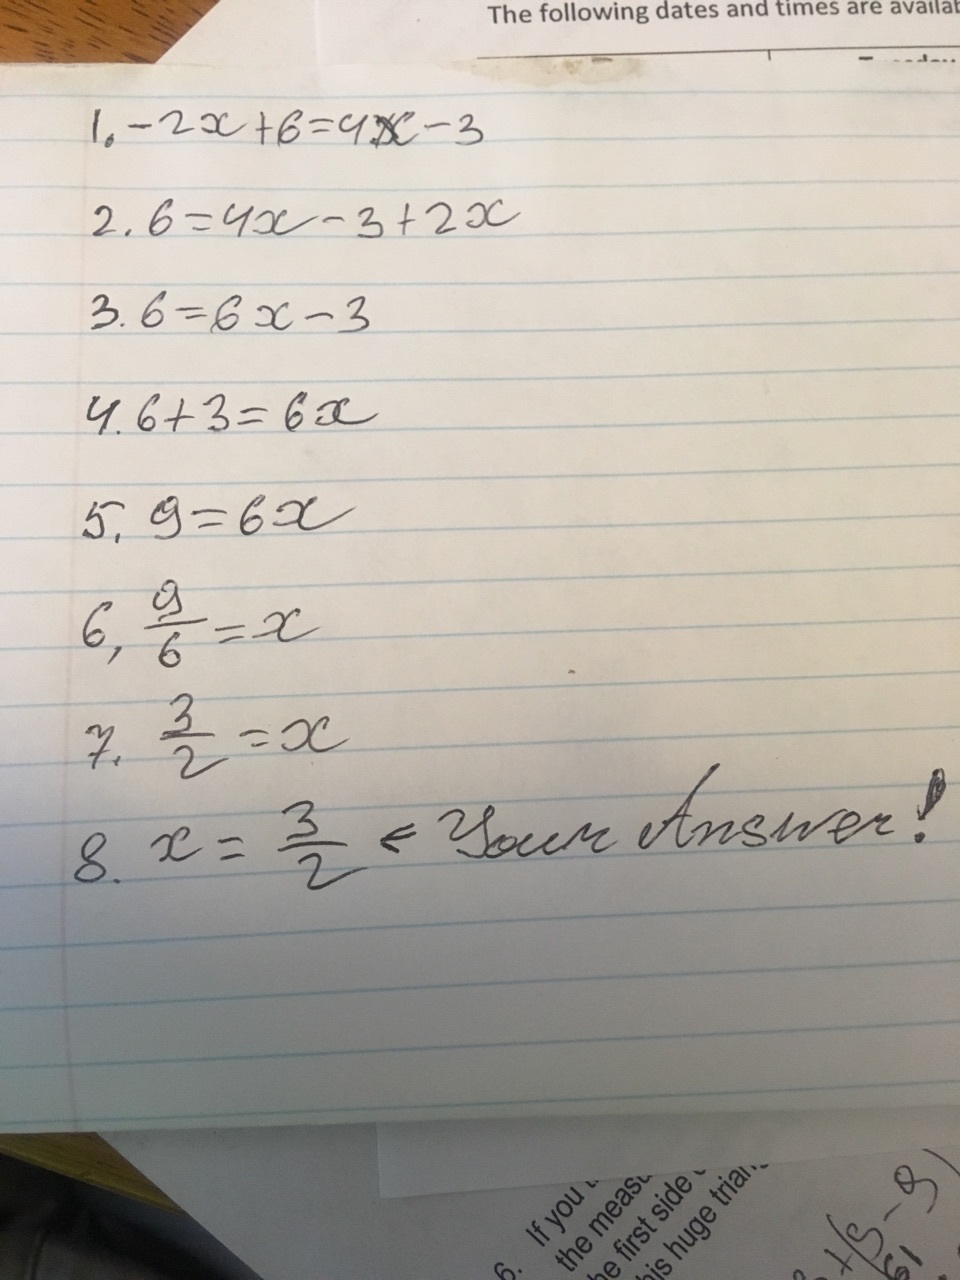 The following dates and times are availab
1. -2x+6=4x-3
2. 6=4x-3+2x
3. 6=6x-3
4. 6+3=6x
5. 9=6x
6, 9/6=x
7. 3/2=x
8. x=3/2 < Your Answer!
6. If you
the measu
he first side
his huge trian